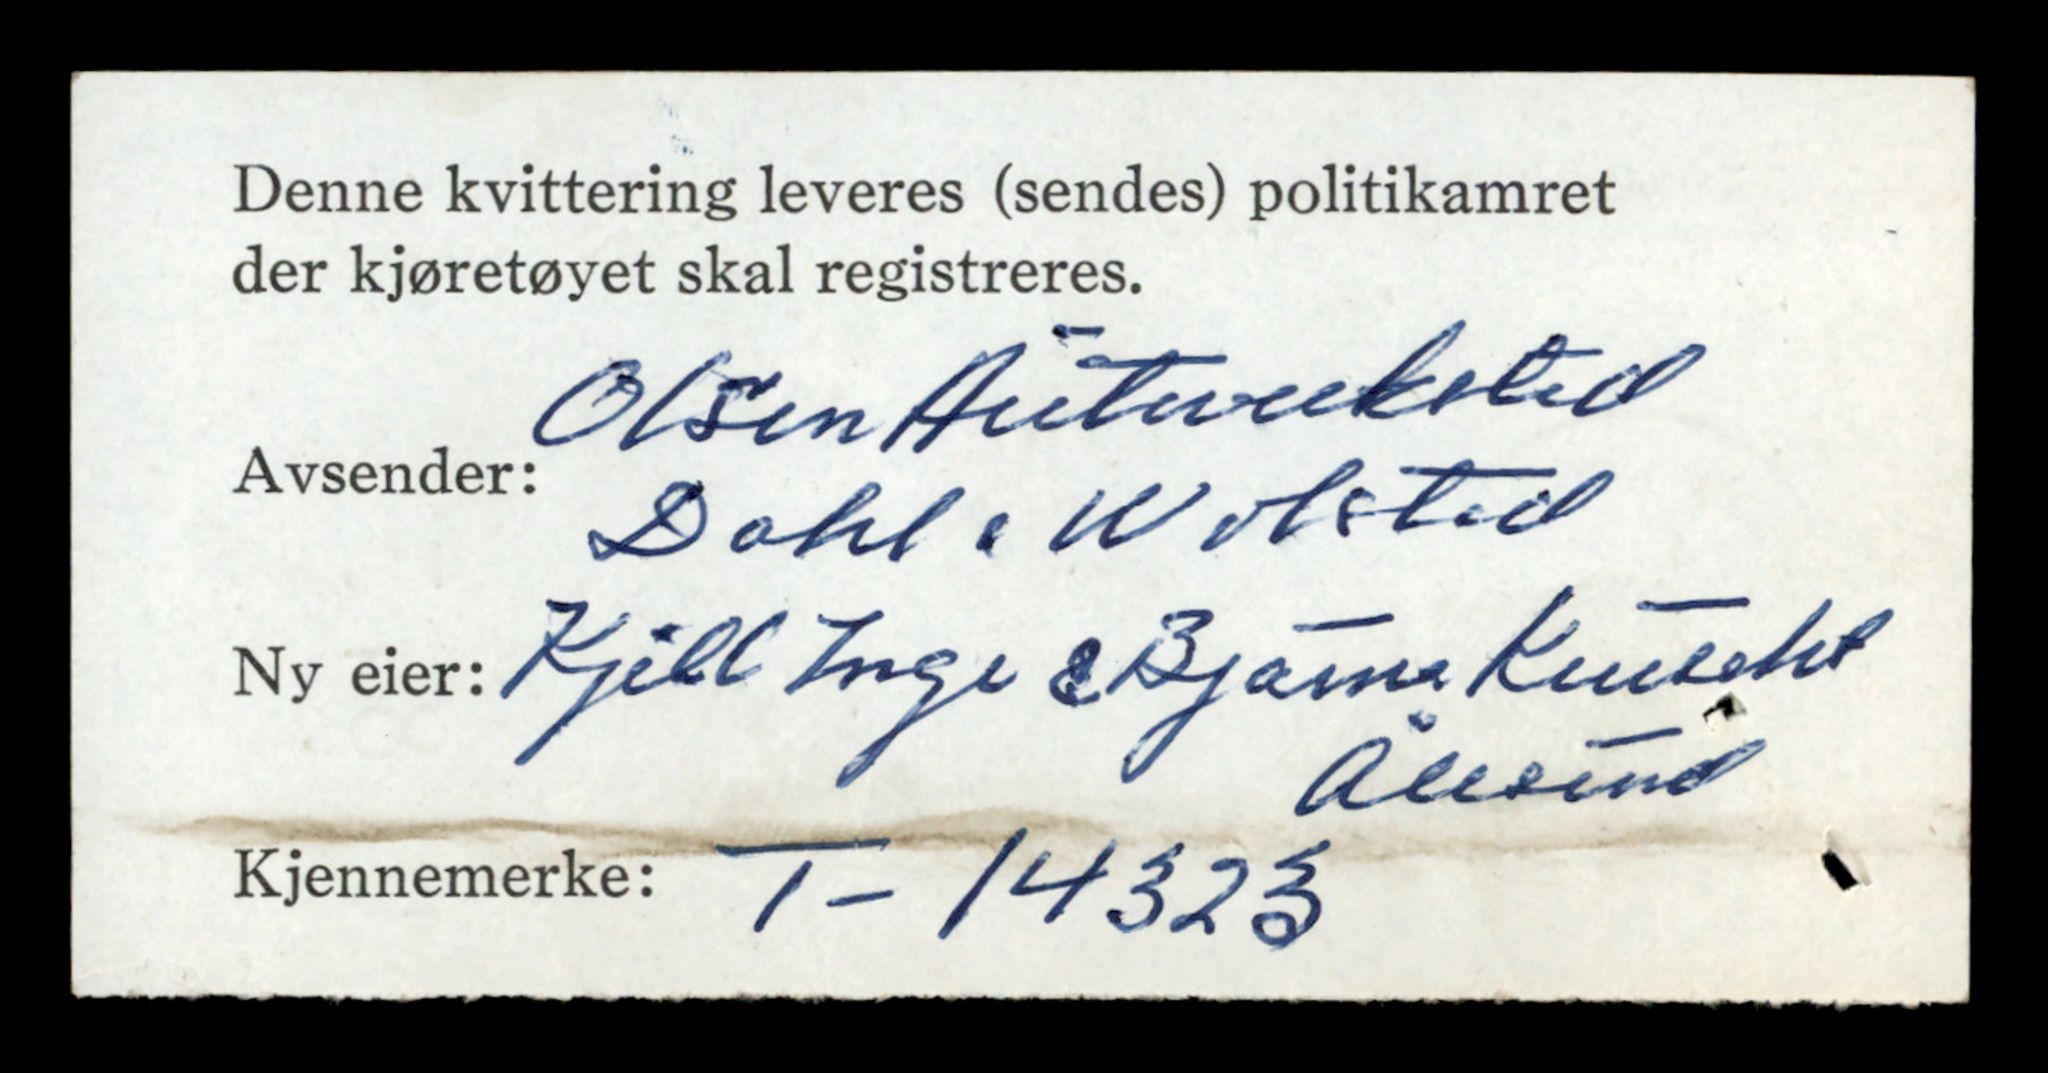 Denne kvittering leveres (sendes) politikamret
der kjøretøyet skal registreres.
Olsen
Avsender:
Dahl &
Ny eier: Kjell Inge & Bjarne
Ålesund
Kjennemerke: T- 14323